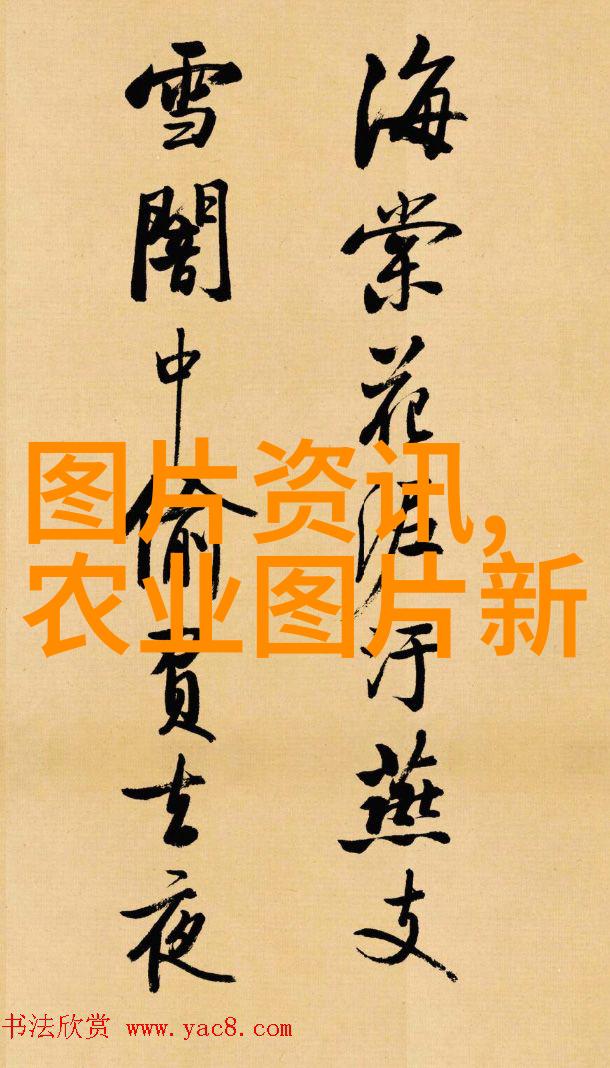 海棠花泥汙燕支
雪闇中偷負去夜
图片资讯,
农业图片新
书法欣赏 www.yac8.com